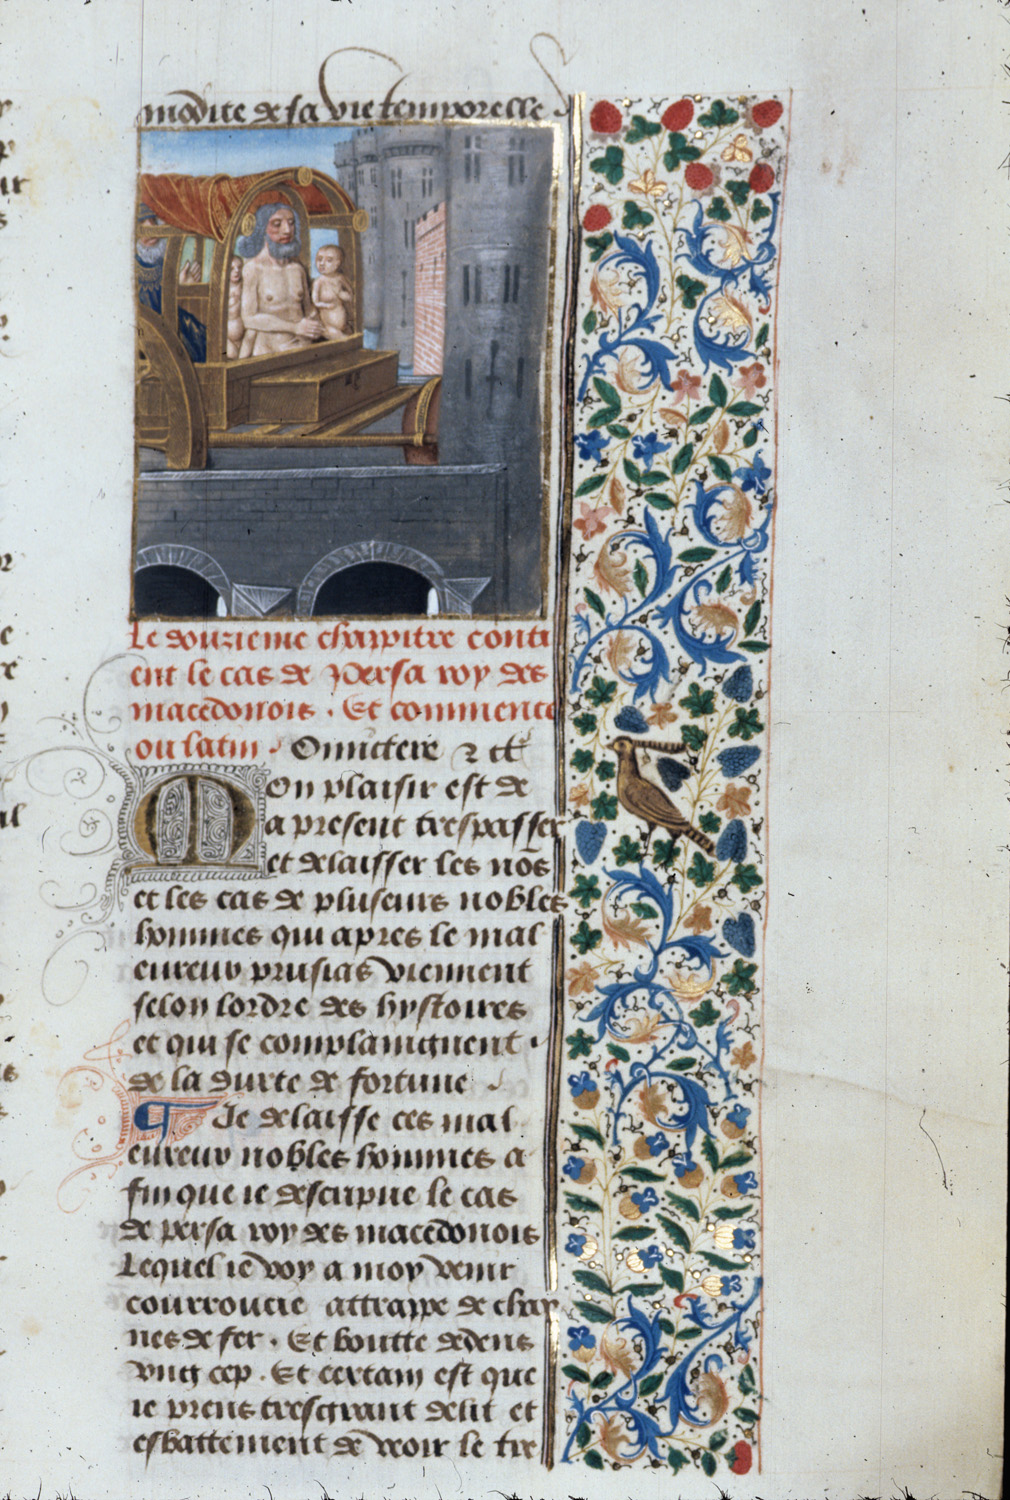 mōdite de sa vie temporelle
Le douzieme chappitre conti
ent le cas de Persa roy des
macedonois . Et commence
ou latin . Omictere ⁊ cᷓ
Mon plaisir est de
a present trespasser
et delaisser les nōs
et les cas de pluseurs nobles
hommes qui apres le mal
eureux prusias viennent
selon lordre des hystoires
et qui se complaingnent .
de la durte de fortune
¶ Je delaisse ces mal
eureux nobles hommes a
fin que ie descripue le cas
de persa roy des macedonois
Lequel ie voy a moy venir
courroucie attrappe de chay
nes de fer . Et boutte dedens
vng cep . Et certain est que
ie prens tresgrant delit et
esbattement de veoir le tre